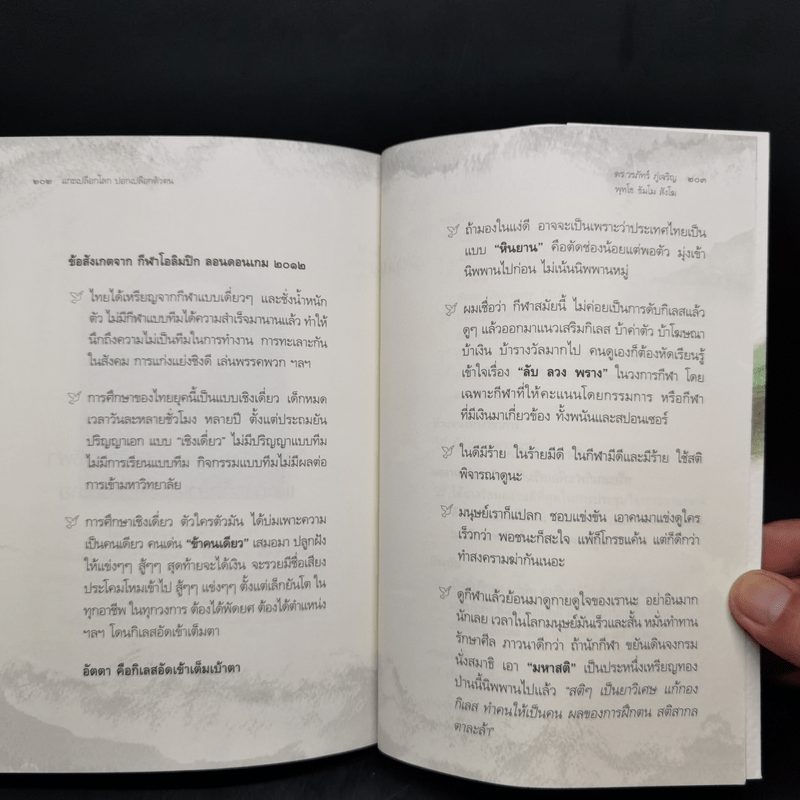 ๒๐๒ แกะเปลือกโลก ปอกเปลือกตัวตน
ข้อสังเกตจาก กีฬาโอลิมปิก ลอนดอนเกม ๒๐๑๒
ไทยได้เหรียญจากกีฬาแบบเดี่ยวๆ และชั่งน้ำหนัก
ตัว ไม่มีกีฬาแบบทีมได้ความสำเร็จมานานแล้ว ทำให้
นึกถึงความไม่เป็นทีมในการทำงาน การทะเลาะกัน
ในสังคม การแก่งแย่งชิงดี เล่นพรรคพวก ฯลฯ
การศึกษาของไทยยุคนี้เป็นแบบเชิงเดี่ยว เด็กหมด
เวลาวันละหลายชั่วโมง หลายปี ตั้งแต่ประถมยัน
ปริญญาเอก แบบ “เชิงเดี่ยว” ไม่มีปริญญาแบบทีม
ไม่มีการเรียนแบบทีม กิจกรรมแบบทีมไม่มีผลต่อ
การเข้ามหาวิทยาลัย
การศึกษาเชิงเดี่ยว ตัวใครตัวมัน ได้บ่มเพาะความ
เป็นคนเดียว คนเด่น “ข้าคนเดียว” เสมอมา ปลูกฝัง
ให้แข่งๆๆ สู้ๆๆ สุดท้ายจะได้เงิน จะรวยมีชื่อเสียง
ประโคมโหมเข้าไป สู้ๆๆ แข่งๆๆ ตั้งแต่เล็กยันโต ใน
ทุกอาชีพ ในทุกวงการ ต้องได้พัดยศ ต้องได้ตำแหน่ง
ฯลฯ โดนกิเลสอัดเข้าเต็มตา
อัตตา คือกิเลสอัดเข้าเต็มเบ้าตา
ดร.วรภัทร์ ภู่เจริญ ๒๐๓
พุทโธ ธัมโม สังโฆ
ถ้ามองในแง่ดี อาจจะเป็นเพราะว่าประเทศไทยเป็น
แบบ “หินยาน” คือตัดช่องน้อยแต่พอตัว มุ่งเข้า
นิพพานไปก่อน ไม่เน้นนิพพานหมู่
ผมเชื่อว่า กีฬาสมัยนี้ ไม่ค่อยเป็นการดับกิเลสแล้ว
ดูๆ แล้วออกมาแนวเสริมกิเลส บ้าค่าตัว บ้าโฆษณา
บ้าเงิน บ้ารางวัลมากไป คนดูเองก็ต้องหัดเรียนรู้
เข้าใจเรื่อง “ลับ ลวง พราง” ในวงการกีฬา โดย
เฉพาะกีฬาที่ให้คะแนนโดยกรรมการ หรือกีฬา
ที่มีเงินมาเกี่ยวข้อง ทั้งพนันและสปอนเซอร์
ในดีมีร้าย ในร้ายมีดี ในกีฬามีดีและมีร้าย ใช้สติ
พิจารณาดูนะ
มนุษย์เราก็แปลก ชอบแข่งขัน เอาคนมาแข่งดูใคร
เร็วกว่า พอชนะก็สะใจ แพ้ก็โกรธแค้น แต่ก็ดีกว่า
ทำสงครามฆ่ากันเนอะ
ดูกีฬาแล้วย้อนมาดูกายดูใจของเรานะ อย่าอินมาก
นักเลย เวลาในโลกมนุษย์มันเร็วและสั้น หมั่นทำทาน
รักษาศีล ภาวนาดีกว่า ถ้านักกีฬา ขยันเดินจงกรม
นั่งสมาธิ เอา “มหาสติ” เป็นประหนึ่งเหรียญทอง
ปานนี้นิพพานไปแล้ว “สติๆ เป็นยาวิเศษ แก้กอง
กิเลส ทำคนให้เป็นคน ผลของการฝึกตน สติสากล
ตาละล้า”